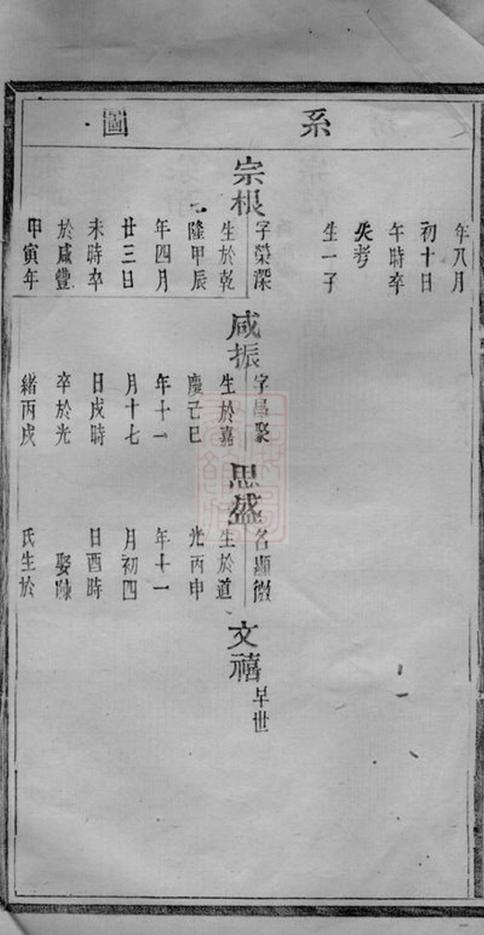 系圖
年八月
初十日
午時卒
失考
生一子
宗根
字榮深
生於乾
隆甲辰
年四月
廿三日
未時卒
於咸豐
甲寅年
咸振
字昌聚
生於嘉
慶己巳
年十一
月十七
日戌時
卒於光
緒丙戌
思盛
名顯微
生於道
光丙申
年十一
月初四
日酉時
娶陳
氏生於
文禧
早世